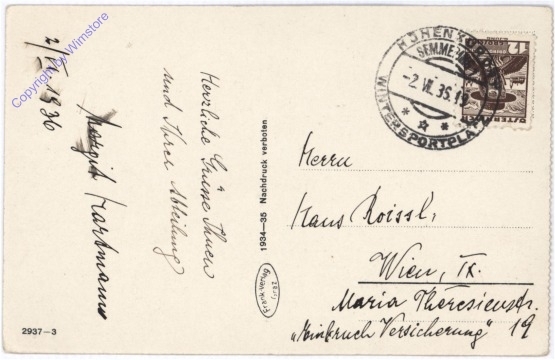 2/VII 1936
Herzliche Grüsse Ihnen
und Ihrer Abteilung
Margit Hartmann
2937-3
1934-35 Nachdruck verboten
Frank-Verlag
Graz
HÖHENKURORT
SEMMERING
-2.VII.36.1
WINTERSPORTPLATZ
12
GROSCHEN
ÖSTERREICH
Herrn
Hans Roissl,
Wien, IX.
Maria Theresienstr.
"Einbruch Versicherung" 19
Copyright by Wimstore